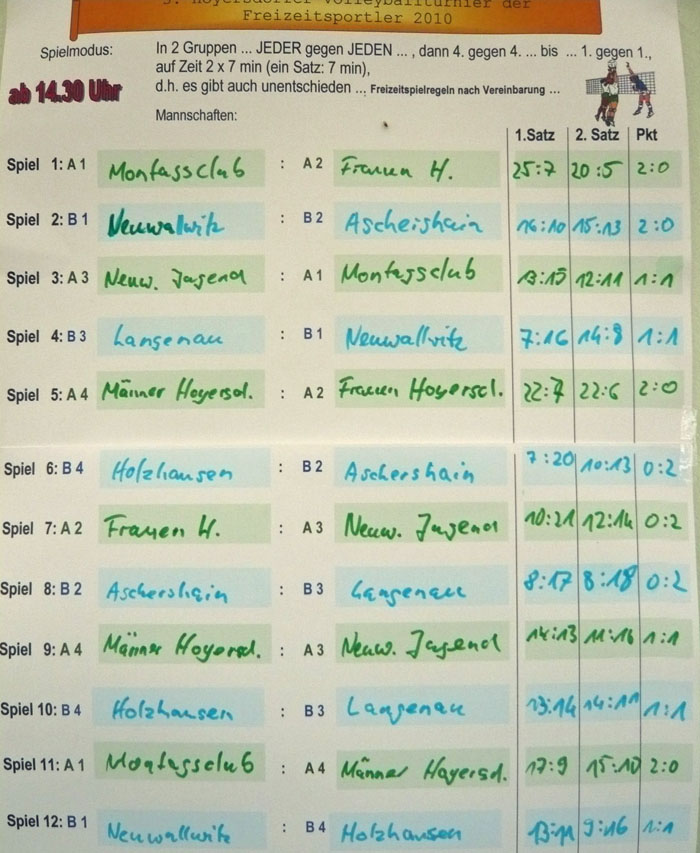 3. Hoyersdorfer Volleyballturnier der
Freizeitsportler 2010
Spielmodus: In 2 Gruppen ... JEDER gegen JEDEN ... , dann 4. gegen 4. ... bis ... 1. gegen 1.,
auf Zeit 2 x 7 min (ein Satz: 7 min),
ab 14.30 Uhr
d.h. es gibt auch unentschieden ... Freizeitspielregeln nach Vereinbarung ...
Mannschaften:
1.Satz 2. Satz Pkt
Spiel 1: A 1 Montagsclub : A 2 Frauen H. 25:7 20:5 2:0
Spiel 2: B 1 Neuwalwitz : B 2 Aschershain 16:10 15:13 2:0
Spiel 3: A 3 Neuw. Jugend : A 1 Montagsclub 13:15 12:11 1:1
Spiel 4: B 3 Langenau : B 1 Neuwallwitz 7:16 14:8 1:1
Spiel 5: A 4 Männer Hoyersd. : A 2 Frauen Hoyersd. 22:7 22:6 2:0
Spiel 6: B 4 Holzhausen : B 2 Aschershain 7:20 10:13 0:2
Spiel 7: A 2 Frauen H. : A 3 Neuw. Jugend 10:21 12:14 0:2
Spiel 8: B 2 Aschershain : B 3 Langenau 8:17 8:18 0:2
Spiel 9: A 4 Männer Hoyersd. : A 3 Neuw. Jugend 14:13 11:16 1:1
Spiel 10: B 4 Holzhausen : B 3 Langenau 13:14 14:11 1:1
Spiel 11: A 1 Montagsclub : A 4 Männer Hoyersd. 17:9 15:10 2:0
Spiel 12: B 1 Neuwallwitz : B 4 Holzhausen 13:11 9:16 1:1